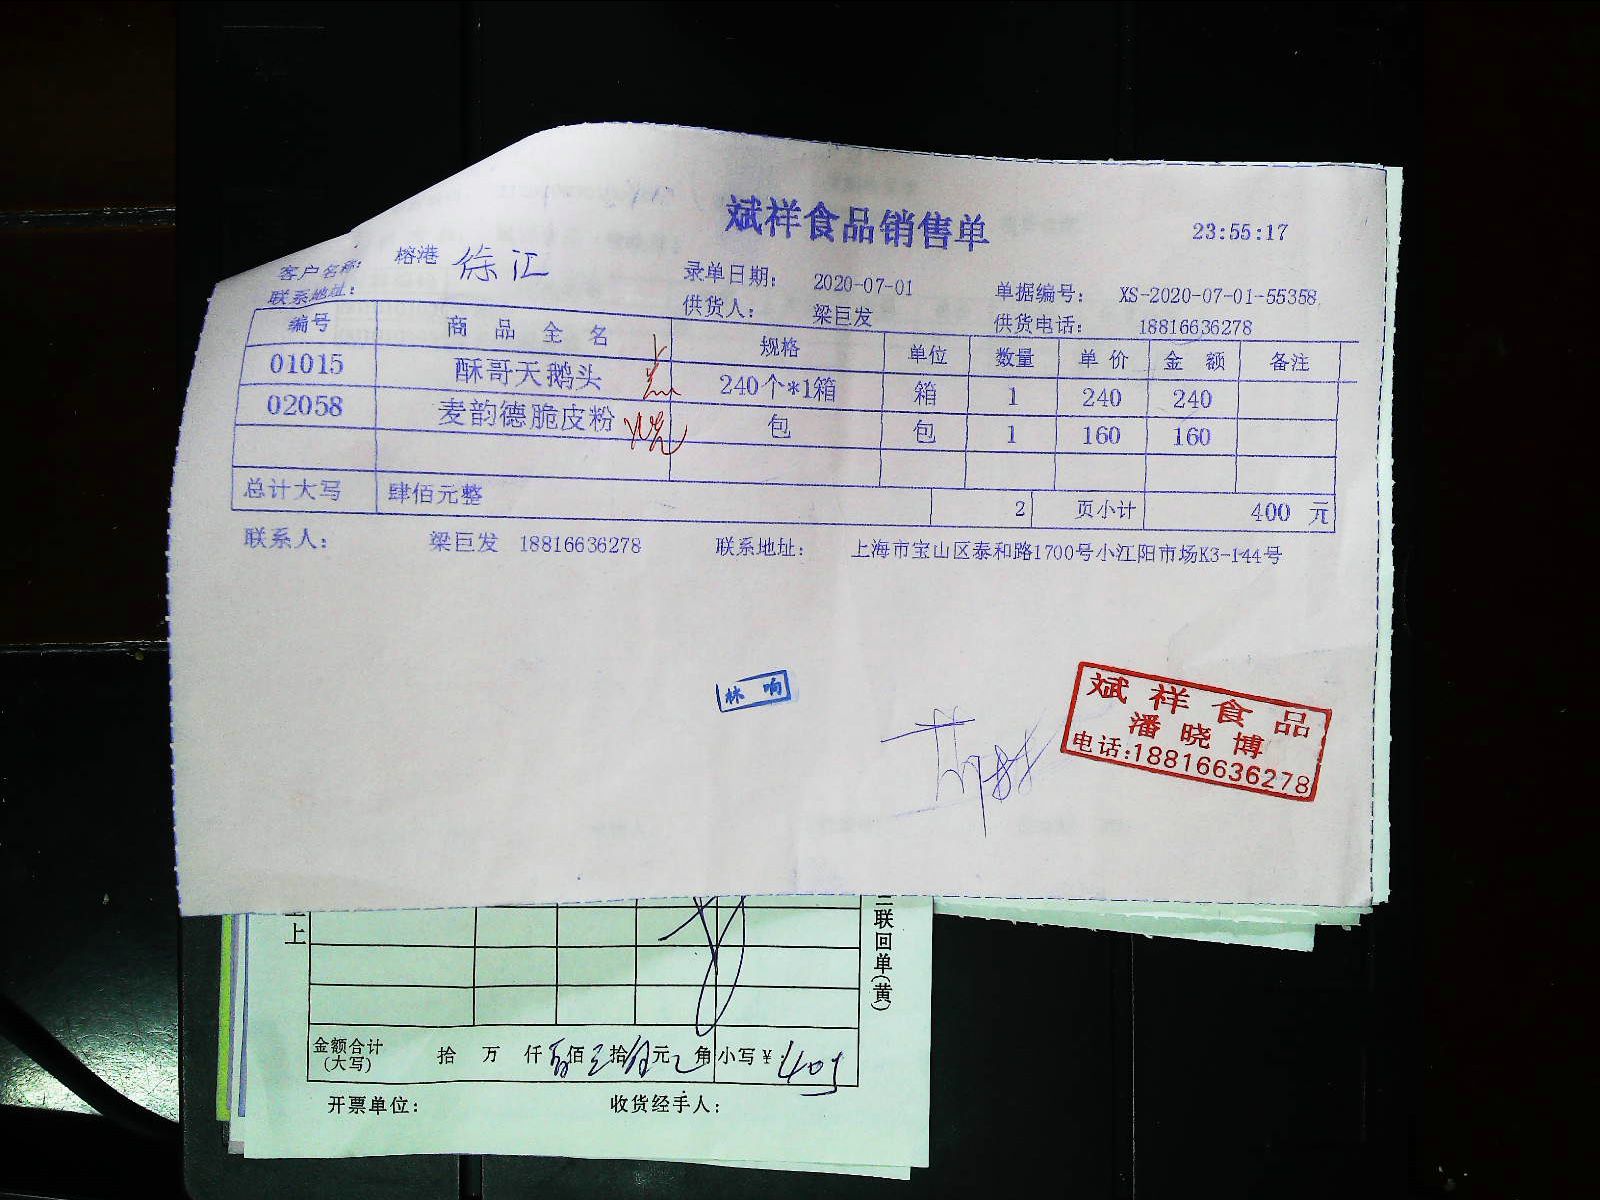 斌祥食品销售单
23:55:17
客户名称： 榕港 徐汇 录单日期： 2020-07-01 单据编号： XS-2020-07-01-55358
联系地址： 供货人： 梁巨发 供货电话： 18816636278
编号 商品全名 规格 单位 数量 单价 金额 备注
01015 酥哥天鹅头 点 240个*1箱 箱 1 240 240
02058 麦韵德脆皮粉 烧 包 包 1 160 160
总计大写 肆佰元整 2 页小计 400 元
联系人： 梁巨发 18816636278 联系地址： 上海市宝山区泰和路1700号小江阳市场K3-144号
林响
斌祥食品
潘晓博
电话:18816636278
上
三联回单(黄)
金额合计(大写) 拾 万 仟 佰 拾 元 角 小写¥
开票单位： 收货经手人：